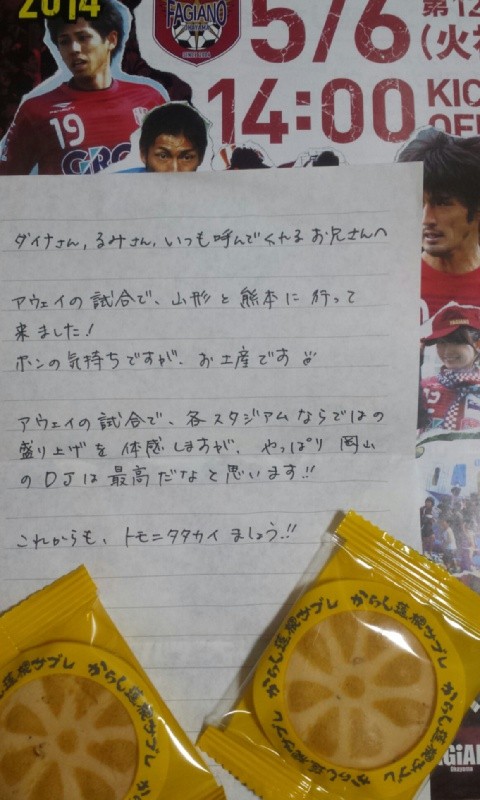 2014
FAGIANO
5/6
第12
(火祝
14:00
KIC
OFF
19
GROP
ダイナさん, るみさん, いつも呼んでくれる お兄さんへ
アウェイの試合で、山形と熊本に行って
来ました!
ホンの気持ちですが、お土産です
アウェイの試合で、各スタジアムならではの
盛り上げを体感しますが、やっぱり岡山
のDJは最高だなと思います!!
これからも、トモニタタカイましょう!!
からし蓮根サブレ
からし蓮根サブレ
からし蓮根サブレ
からし蓮根サブレ
GiAN
Okayama